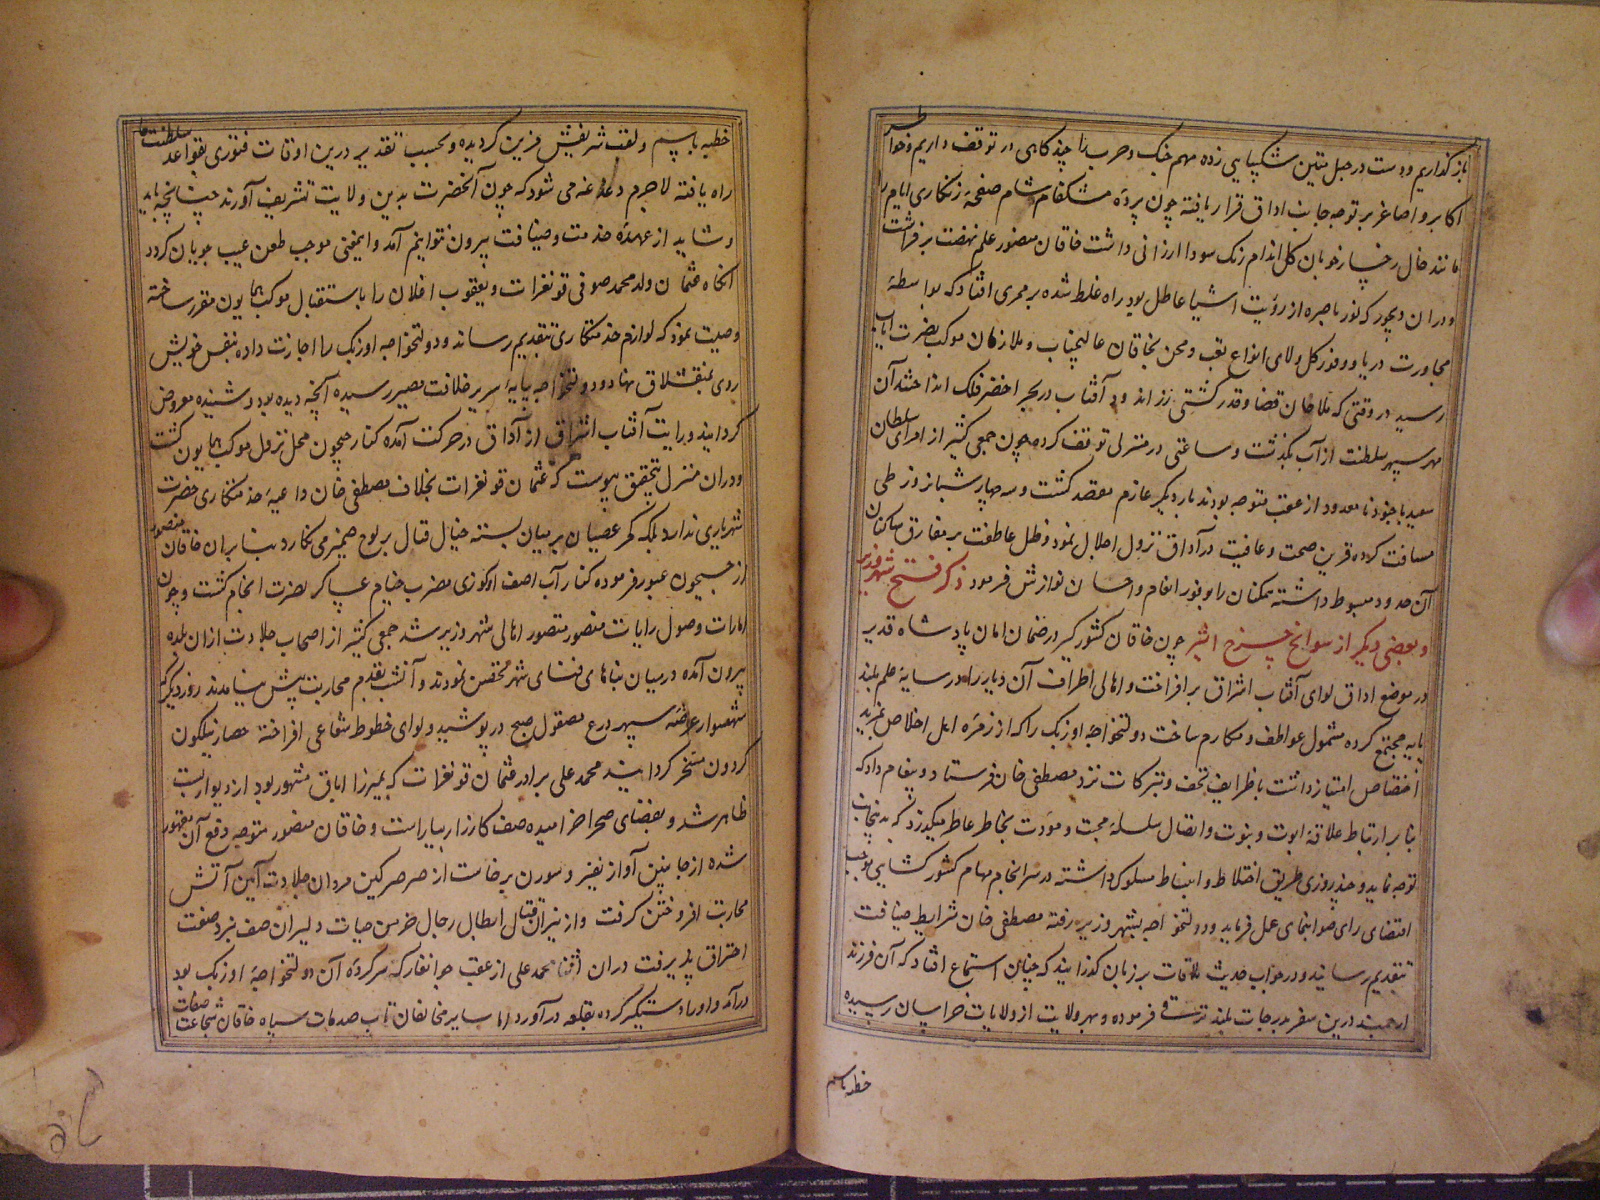 باز گذاریم و دست در حبل متین شکیبایی زده مهم جنک و حرب را چند کاهی در توقف داریم و خواطر
اکابر و اصاغر بر توجه جانب اداق قرار یافته چون پرده مشکفام شام صفحه زنکاری ایام را
مانند خال رخسار خوبان کل اندام رنک سودا ارزانی داشت خاقان منصور علم نهضت برافراشت
و دران دیجور که نور باصره از رؤیت اشیا عاطل بود راه غلط شده بر ممری افتاد که بواسطه
مجاورت دریا و وفور کل و لای انواع تعب و محن بخاقان عالیجناب و ملازمان موکب نصرت ایاب
رسید در وقتی که ملاحان قضا و قدر کشتی زراندود آفتاب در بحر اخضر فلک انداختند آن
مهر سپهر سلطنت از آب بگذشت و ساعتی در منزلی توقف کرده چون جمعی کثیر از امرای سلطان
سعید با جنود نامعدود از عقب متوجه بودند بار دیکر عازم مقصد کشت و سه چهار شبانروز طی
مسافت کرده قرین صحت و عافیت در آداق نزول اجلال نمود و ظل عاطفت بر مفارق ساکنان
آن حدود مبسوط داشته همکنان را بوفور انعام و احسان نوازش فرمود ذکر فتح شهر وزیر
و بعضی دیکر از سوانح چرخ اثیر چون خاقان کشورکیر در ضمان امان پادشاه قدیر
در موضع اداق لوای آفتاب اشراق برافراخت و اهالی اطراف آن دیار را در سایه علم بلند
پایه مجتمع کرده مشمول عواطف و مکارم ساخت دولتخواجه اوزبک را که از زمره اهل اخلاص بمزید
اختصاص امتیاز داشت با ظرایف تحف و تبرکات نزد مصطفی خان فرستاد و پیغام داد که
بنا بر ارتباط علاقه ابوت و بنوت و اتصال سلسله محبت و مودت بخاطر عاطر میکذرد که بدینجانب
توجه نماید و چند روزی طریق اختلاط و انبساط مسلوک داشته در سرانجام مهام کشورکشایی بموجب
اقتضای رای صوابنمای عمل فرماید و دولتخواجه بشهر وزیر رفته مصطفی خان شرایط ضیافت
بتقدیم رسانید و در جواب حدیث ملاقات بر زبان کذرانید که چنان استماع افتاد که آن فرزند
ارجمند درین سفر بدرجات بلند ترقی فرموده و بهر ولایت از ولایات خراسان رسیده
خطبه باسم
خطبه باسم و لقب شریفش مزین کردیده و بحسب تقدیر درین اوقات فتوری بقواعد سلطنت ما
راه یافته لاجرم دغدغه می شود که چون آنحضرت بدین ولایت تشریف آورند چنانچه باید
و شاید از عهده خدمت و ضیافت بیرون نتوانیم آمد و اینمعنی موجب طعن عیب جویان کردد
آنکاه عثمان ولد محمد صوفی قونغرات و یعقوب اغلان را باستقبال موکب همایون مقرر ساخته
وصیت نمود که لوازم خدمتکاری بتقدیم رساند و دولتخواجه اوزبک را اجازت داده بنفس خویش
روی بمنقشلاق نهاد و دولتخواجه بپایه سریر خلافت مصیر رسیده آنچه دیده بود و شنیده معروض
کردانید و رایت آفتاب اشراق از آداق در حرکت آمده کنار جیحون محل نزول موکب همایون کشت
و دران منزل بتحقیق پیوست که عثمان قونغرات بخلاف مصطفی خان داعیه خدمتکاری حضرت
شهریاری ندارد بلکه کمر عصیان بر میان بسته خیال قتال بر لوح ضمیر می نکارد بنا بران خاقان منصور
از جیحون عبور فرموده کنار آب اصف اوکوزی مضرب خیام عساکر نصرت انجام کشت و چون
امارات وصول رایات منصور متصور اهالی شهر وزیر شد جمعی کثیر از اصحاب جلادت ازان بلده
بیرون آمده در میان بناهای فضای شهر متحصن نمودند و آنشب بقدم محاربت پیش نیامدند روز دیکر که
شهسوار عرصه سپهر درع مصقول صبح در پوشید و لوای خطوط شعاعی افراخته حصار نیلکون
کردون مسخر کردانید محمد علی برادر عثمان قونغرات که بمیرزا اباق مشهور بود از دیواربست
ظاهر شد و بفضای صحرا خرامیده صف کارزار بیاراست و خاقان منصور متوجه دفع آن مقهور
شده از جانبین آواز نفیر و سورن برخاست از صرصر کین مردان جلادت آیین آتش
محاربت افروختن کرفت و از نیران قتال ابطال رجال خرمن حیات دلیران صف نبرد صفت
احتراق پذیرفت دران اثنا محمد علی از عقب جوانغار که سرکرده آن دولتخواجه اوزبک بود
درآمد و او را دستکیر کرده بقلعه درآورد اما سایر مخالفان تاب صدمات سپاه خاقان شجاعت صفات